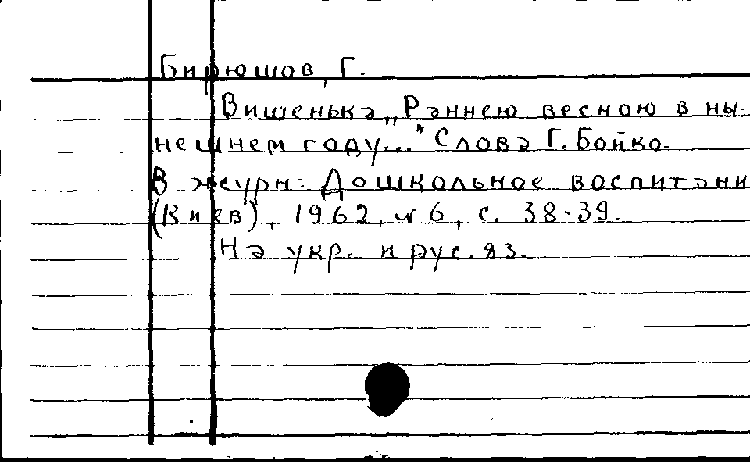 Бирюшов, Г.
Вишенька „Раннею весною в ны-
нешнем году..." Слова Г. Бойко.
В журн.: Дошкольное воспитани
(Киев), 1962, № 6, с. 38-39.
На укр. и рус. яз.